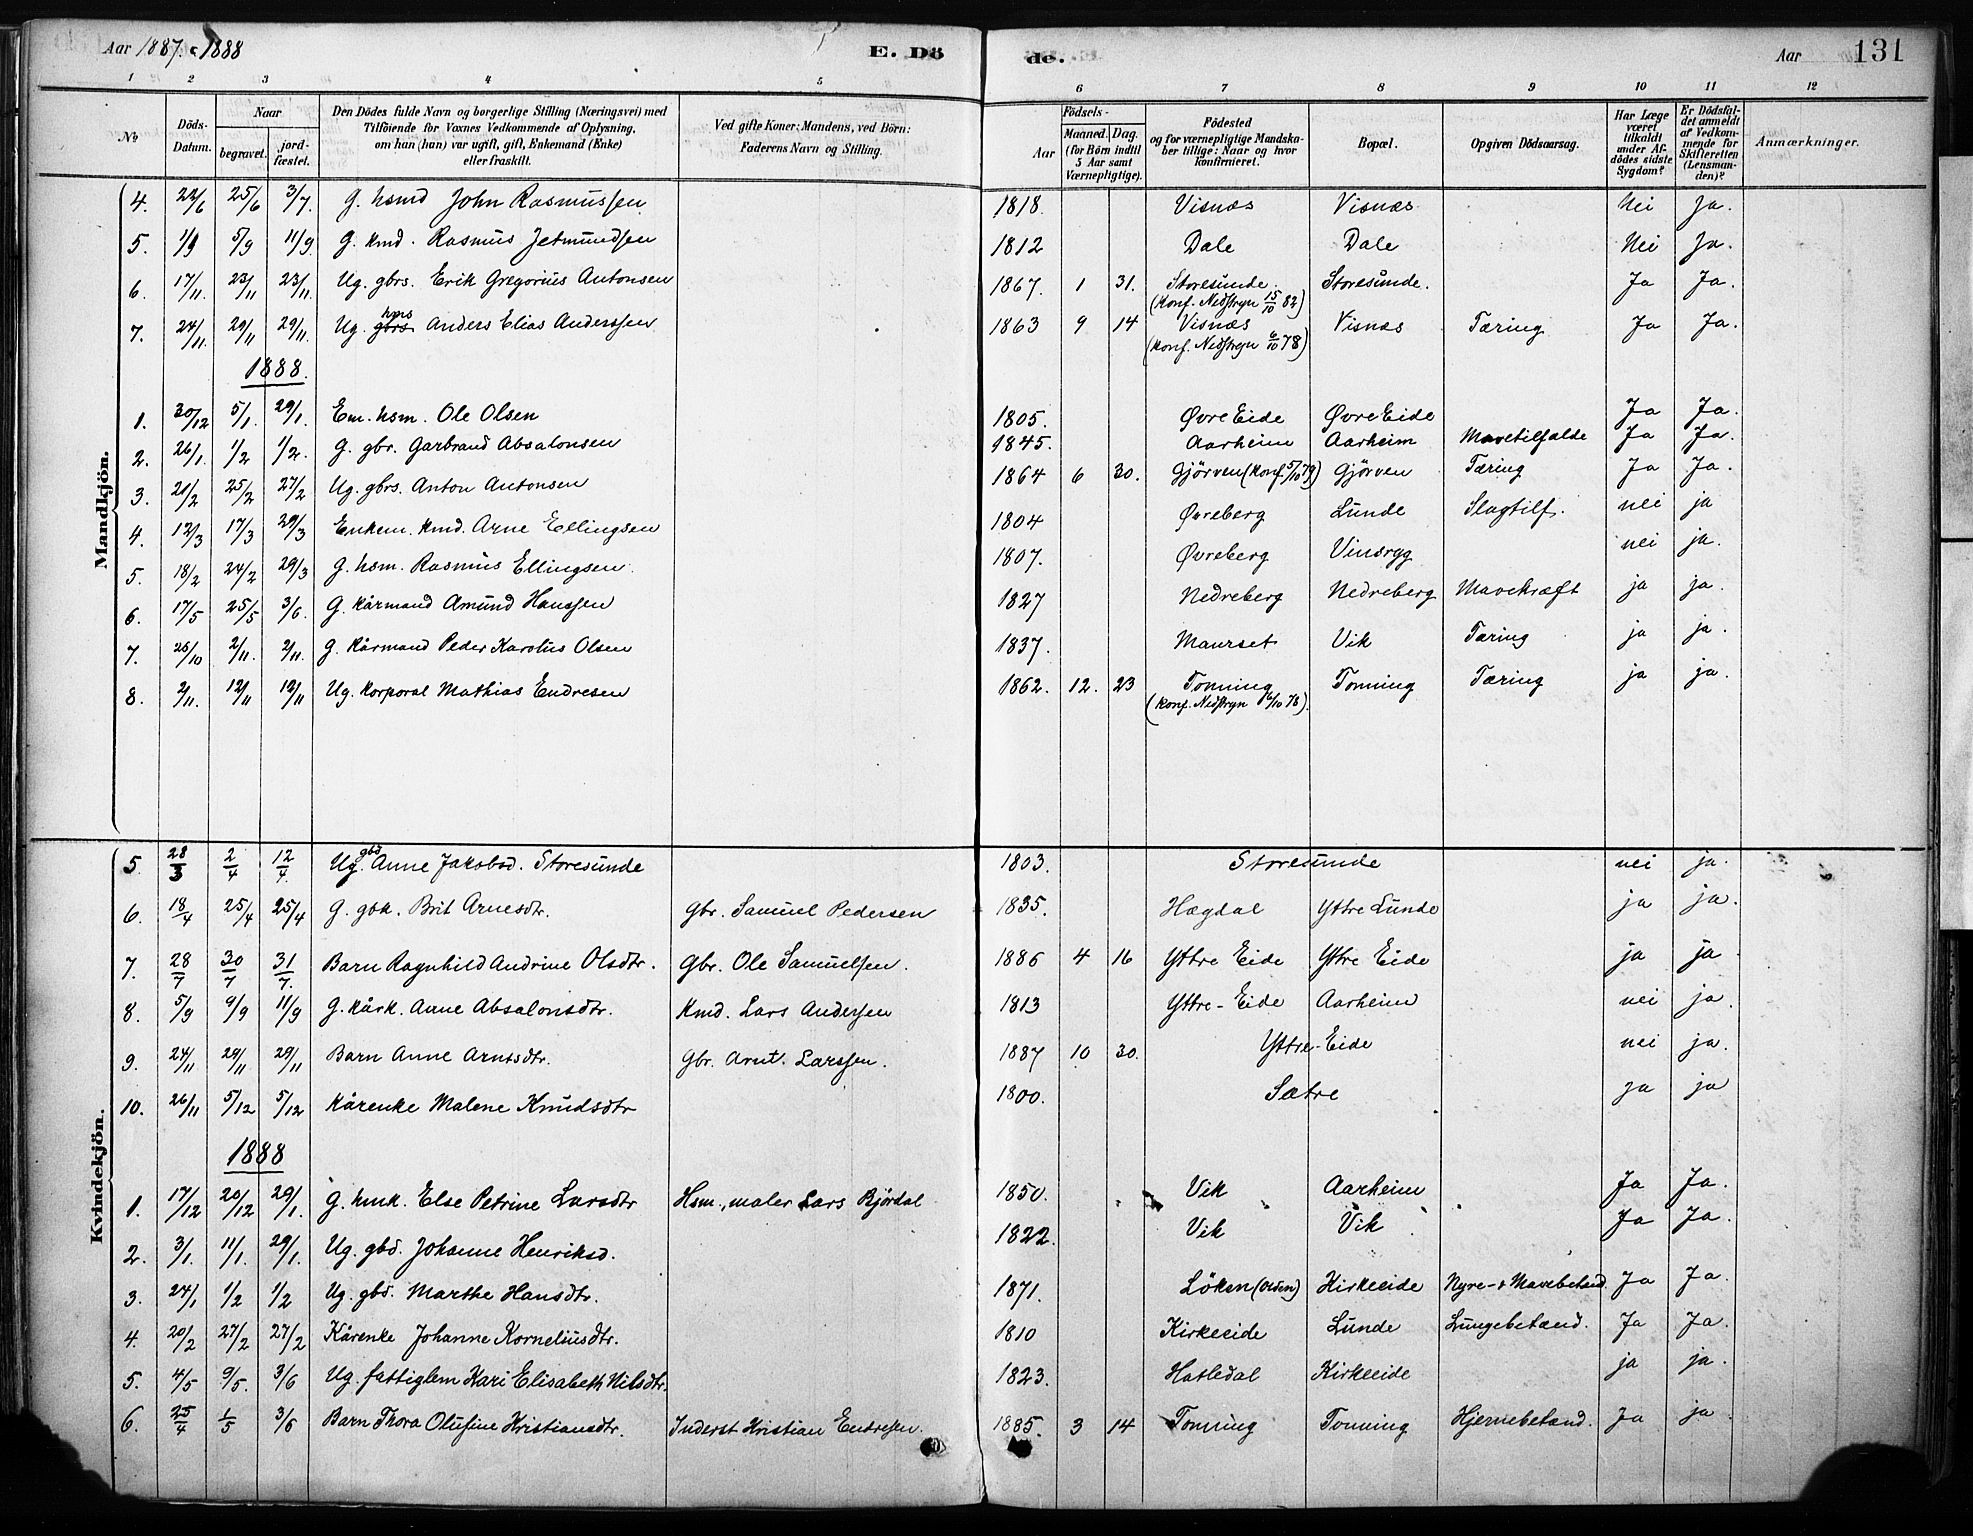 Aar 1887. & 1888 E. Dö de. Aar 131
1 2 3 4 5 6 7 8 9 10 11 12
No. Döds-Datum. Naar begravet. jord-fæstet. Den Dödes fulde Navn og borgerlige Stilling (Næringsvei) med Tilföiende for Voxnes Vedkommende af Oplysning, om han (hun) var ugift, gift, Enkemand (Enke) eller fraskilt. Ved gifte Koner: Mandens, ved Börn: Faderens Navn og Stilling. Födsels- Aar Maaned. Dag. (for Börn indtil 5 Aar samt Værnepligtige). Födested og for værnepligtige Mandskaber tillige: Naar og hvor konfirmeret. Bopæl. Opgiven Dödsaarsag. Har Læge været tilkaldt under Afdödes sidste Sygdom? Er Dödsfaldet anmeldt af Vedkommende for Skifteretten (Lensmanden)? Anmærkninger.
Mandkjön.
4. 22/6 25/6 3/7. G. hsmd John Rasmussen 1818. Visnæs Visnæs Nei Ja.
5. 1/9 5/9 11/9 G. kmd. Rasmus Jetmundsen 1812 Dale Dale Nei Ja.
6. 17/11. 23/11 23/11. Ug. gbrs. Erik Gregorius Antonsen 1867. 1 31. Storesunde. (Konf. Nedstryn 15/10 82) Storesunde. Ja Ja.
7. 24/11. 29/11 29/11. Ug. gbrs hms Anders Elias Anderssen 1863 9 14 Visnæs (konf. Nedstryn 6/10 78) Visnæs Tæring Ja Ja.
1888.
1. 30/12 5/1. 29/1. Em. hsm. Ole Olsen 1805. Øvre Eide Øvre Eide Ja Ja.
2. 26/1. 1/2 1/2. G. gbr. Garbrand Absalonsen 1845. Aarheim Aarheim Mavetilfælde Ja Ja.
3. 21/2 25/2 27/2 Ug. gbrs. Anton Antonsen 1864 6 30. Gjörven (Konf. 5/10 79) Gjörven Tæring Ja Ja.
4. 12/3 17/3 29/3 Enkem. kmd. Arne Ellingsen 1804 Øvreberg Lunde Slagtilf. nei ja
5. 18/2 24/2 29/3 G. hsm. Rasmus Ellingsen. 1807. Øvreberg Vinsryg nei ja.
6. 17/5 25/5 3/6. G. kårmand Amund Hanssen 1827 Nedreberg Nedreberg Mavekræft ja ja.
7. 25/10 2/11. 2/11. G. kårmand Peder Karolus Olsen 1837. Maurset Vik Tæring ja ja.
8. 2/11. 12/11 12/11 Ug. korporal Mathias Endresen 1862. 12. 23 Tonning (konf. Nedstryn 6/10 78). Tonning Tæring ja ja.
Kvindekjön.
5 28/3 2/4 12/4. Ug. gbd Anne Jakobsd. Storesunde 1803. Storesunde nei ja.
6. 18/4 25/4 25/4 G. gbk. Brit Arnesdtr. Gbr. Samuel Pedersen 1835. Hægdal Yttre Lunde ja ja.
7. 28/7 30/7 31/7. Barn Ragnhild Andrine Olsdtr. Gbr. Ole Samuelsen. 1886 4 16 Yttre Eide Yttre Eide ja ja
8. 5/9 9/9 11/9 G. kårk. Anne Absalonsdtr. Kmd. Lars Andersen 1813 Yttre-Eide Aarheim nei ja.
9. 24/11 29/11 29/11 Barn Anne Arntsdtr. Gbr. Arnt. Larssen. 1887 10 30. Yttre-Eide nei ja.
10. 26/11 5/12 5/12 Kårenke Malene Knudsdtr 1800. Sætre ja ja
1888
1. 17/12 20/12 29/1. G. hmk. Else Petrine Larsdtr Hsm., maler Lars Björdal 1850. Vik Aarheim Ja Ja.
2. 3/1. 11/1. 29/1. Ug. gbd. Johanne Henriksd. 1822. Vik Vik Ja Ja.
3. 24/1 1/2 1/2 Ug. gbd. Marthe Hansdtr. 1871. Löken (Olden) Kirkeeide Nyre- & Mavebetænd. Ja Ja.
4. 20/2 27/2 27/2 Kårenke Johanne Korneliusdtr. 1810 Kirkeeide Lunde Lungebetænd. Ja Ja.
5. 4/5 9/5. 3/6 Ug. fattiglem Kari Elisabeth Nilsdtr. 1823. Hatledal Kirkeeide ja ja.
6. 25/4 1/5 3/6 Barn Thora Olufine Kristiansdtr. Inderst Kristian Endresen. 1885. 3 14 Tonning Tonning Hjernebetænd. Ja ja.